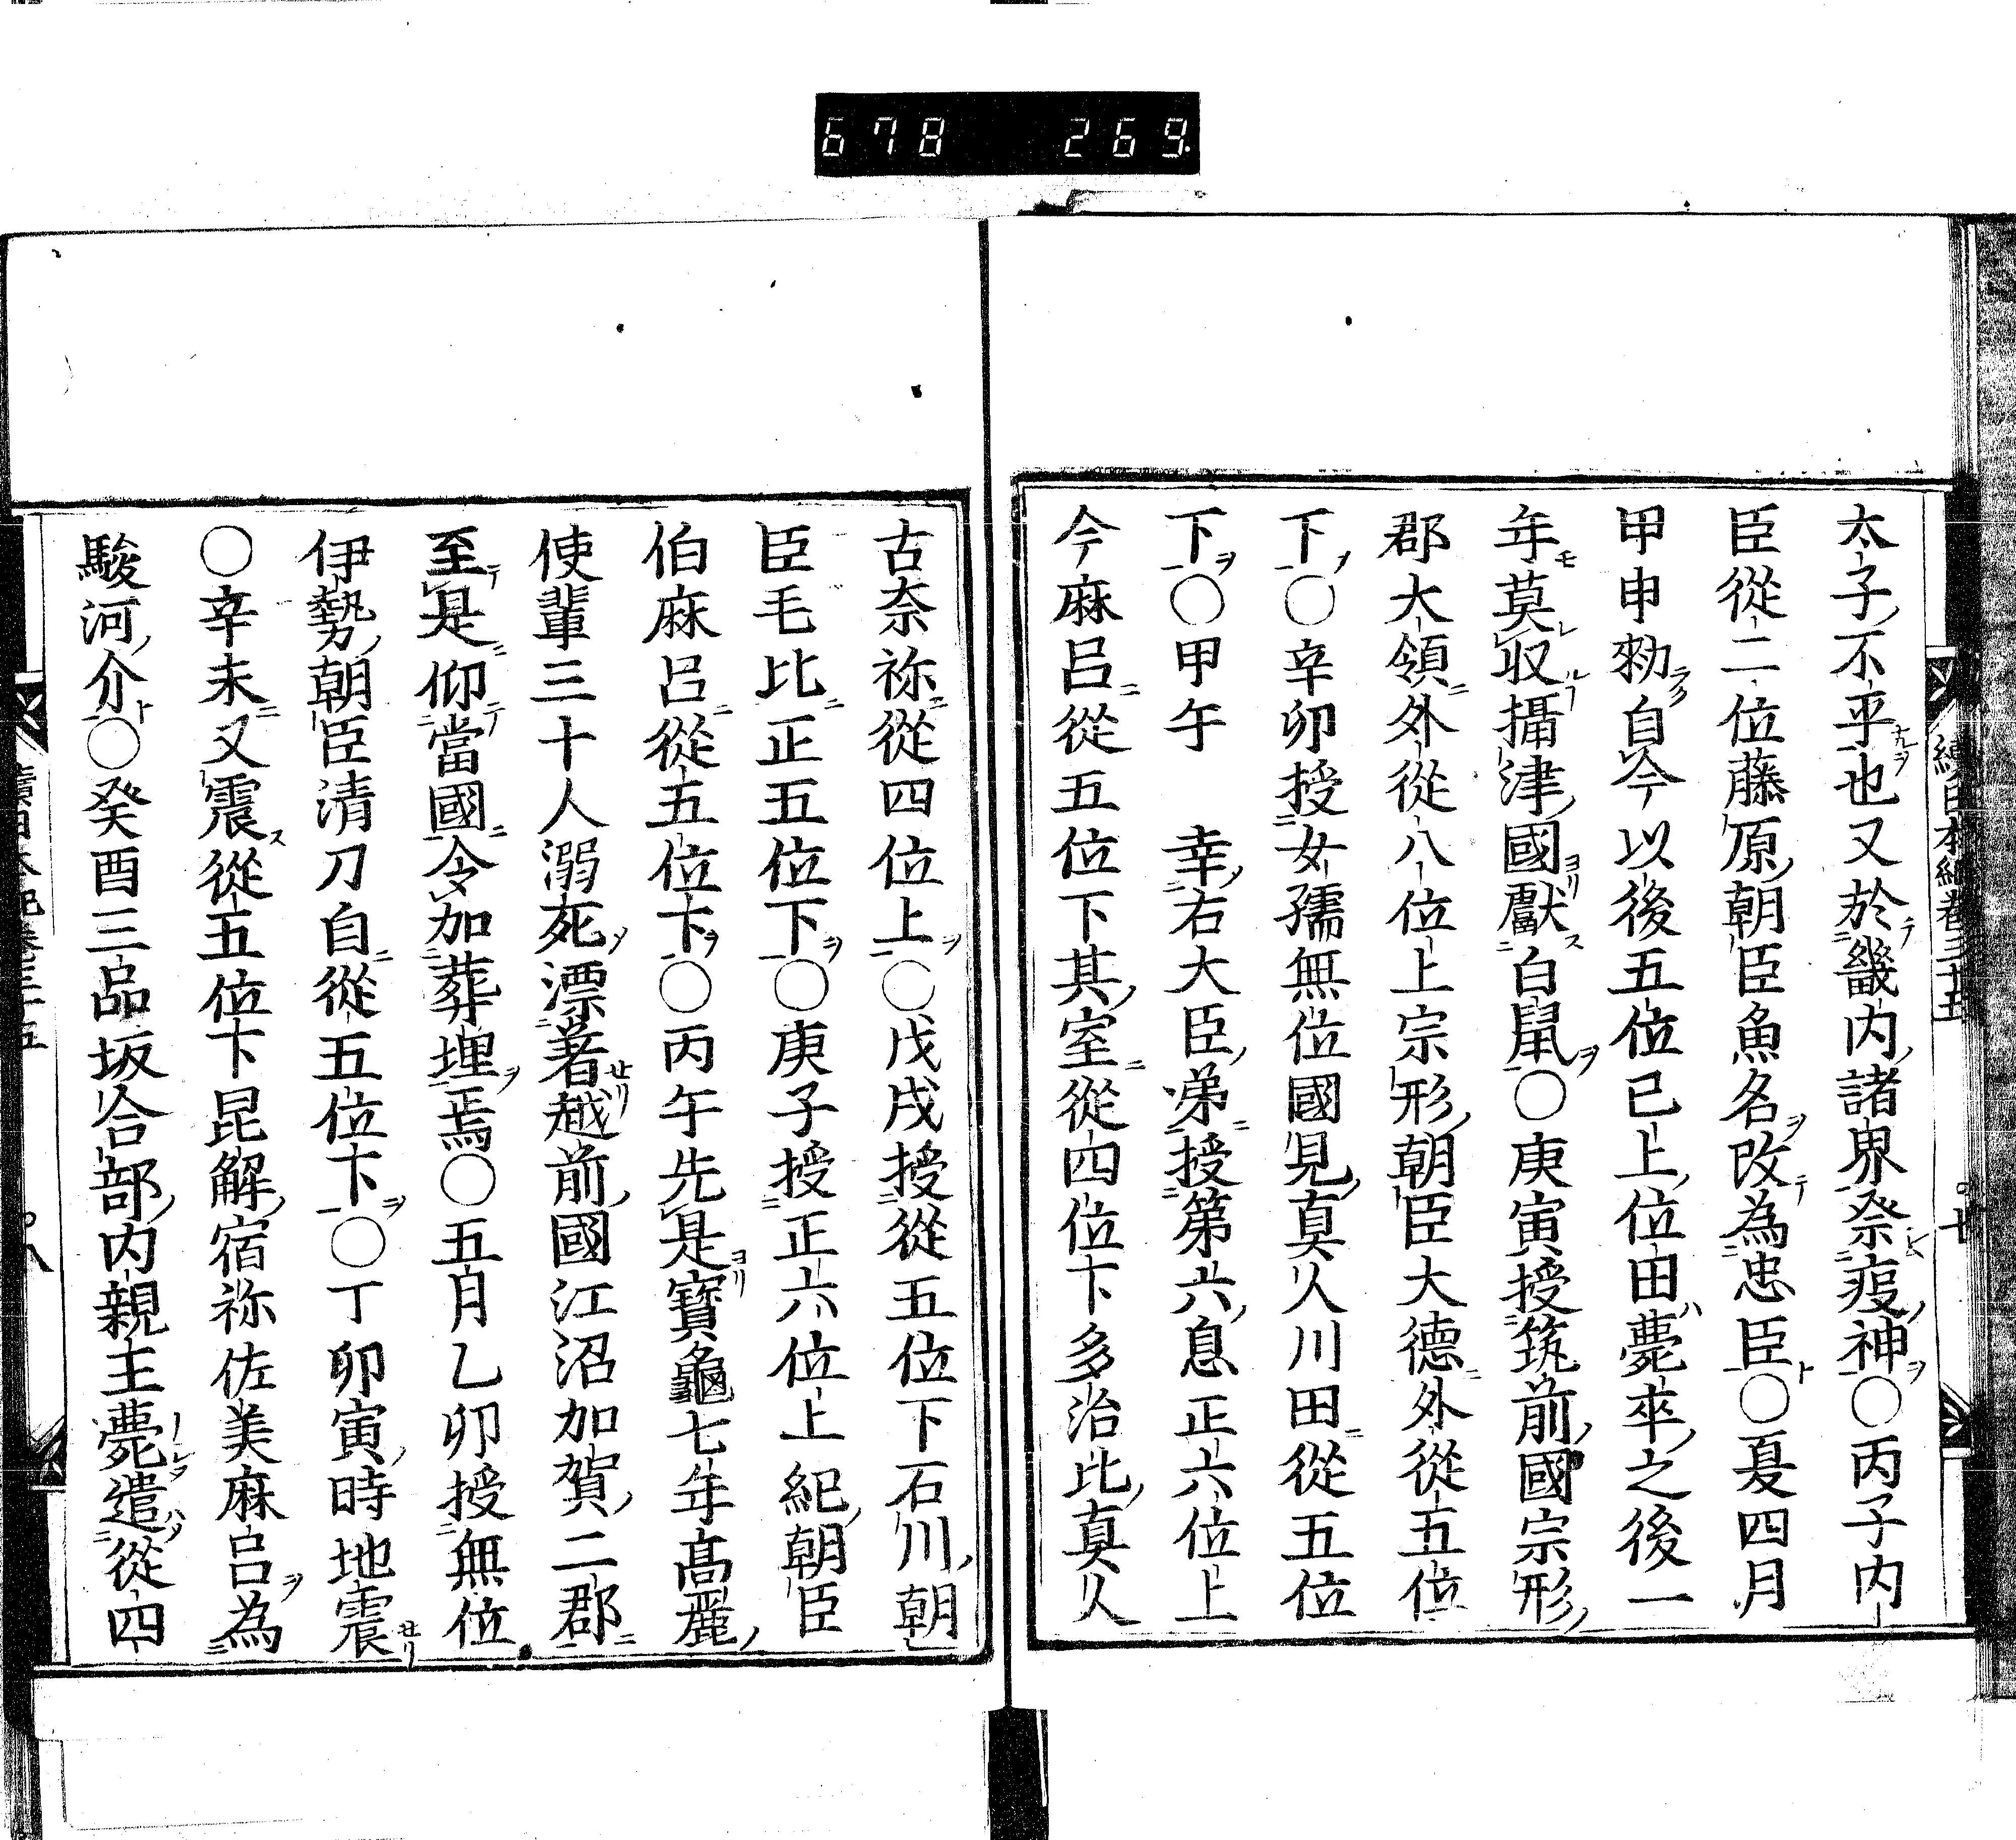 678 269
太子不平也又於畿内諸界祭疫神○丙子内
臣從二位藤原朝臣魚名改為忠臣○夏四月
甲申勑自今以後五位已上位田薨卒之後一
年莫収攝津國獻白鼠○庚寅授筑前國宗形
郡大領外從八位上宗形朝臣大德外從五位
下○辛卯授女孺無位國見真人川田從五位
下○甲午　幸右大臣弟授第六息正六位上
今麻呂從五位下其室從四位下多治比真人
古奈祢從四位上○戊戌授從五位下石川朝
臣毛比正五位下○庚子授正六位上紀朝臣
伯麻呂從五位下○丙午先是寶龜七年髙麗
使輩三十人溺死漂著越前國江沼加賀二郡
至是仰當國令加葬埋焉○五月乙卯授無位
伊勢朝臣清刀自從五位下○丁卯寅時地震
○辛未又震從五位下昆解宿祢佐美麻呂為
駿河介○癸酉三品坂合部内親王薨遣從四